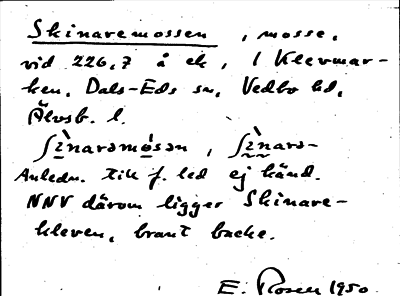 Skinaremossen, mosse,
vid 226,7 å ek, i Klevmar-
ken, Dals-Eds sn, Vedbo hd,
Älvsb. l.
ʃìnarəmósən, ʃìnarə-
Anledn. till f. led ej känd.
NNV därom ligger Skinare-
kleven, brant backe.
E. Rosén 1950